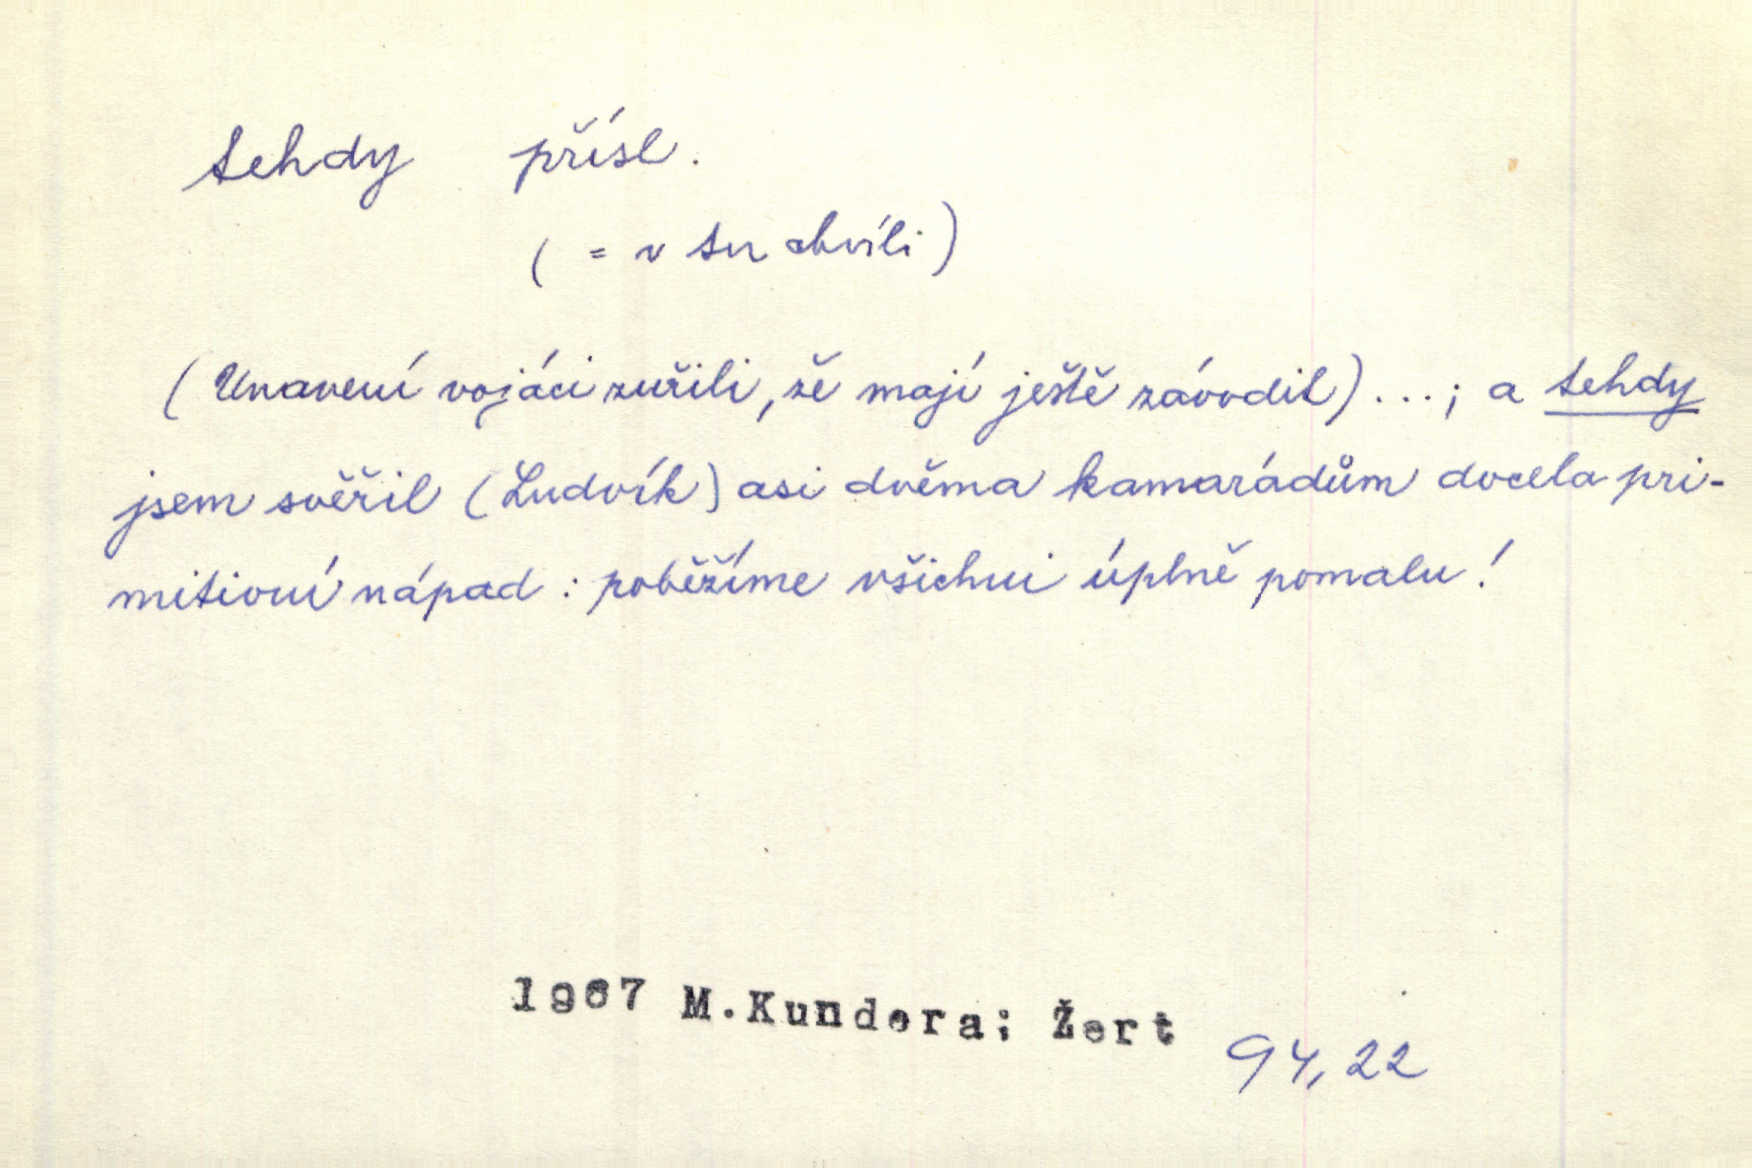 tehdy přísl.
( = v tu chvíli)
(Unavení vojáci zuřili, že mají ještě závodit) ...; a tehdy
jsem svěřil (Ludvík) asi dvěma kamarádům docela pri-
mitivní nápad: poběžíme všichni úplně pomalu!
1967 M.Kundera; Žert 94,22